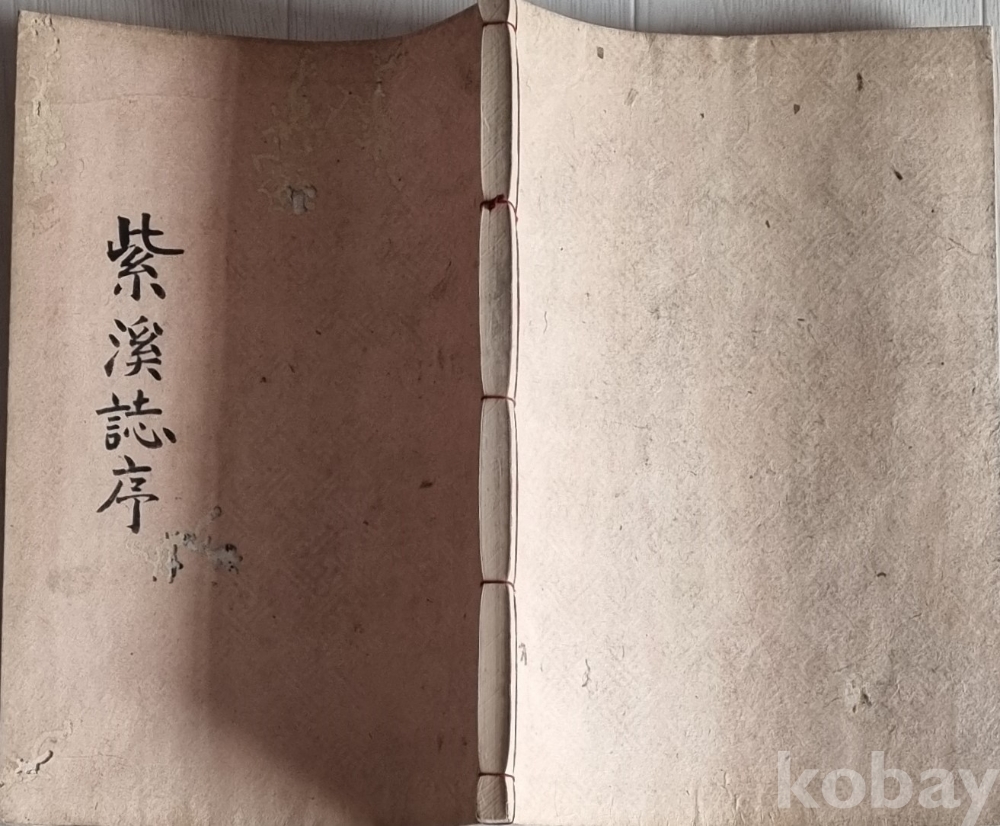 紫溪誌序
kobay